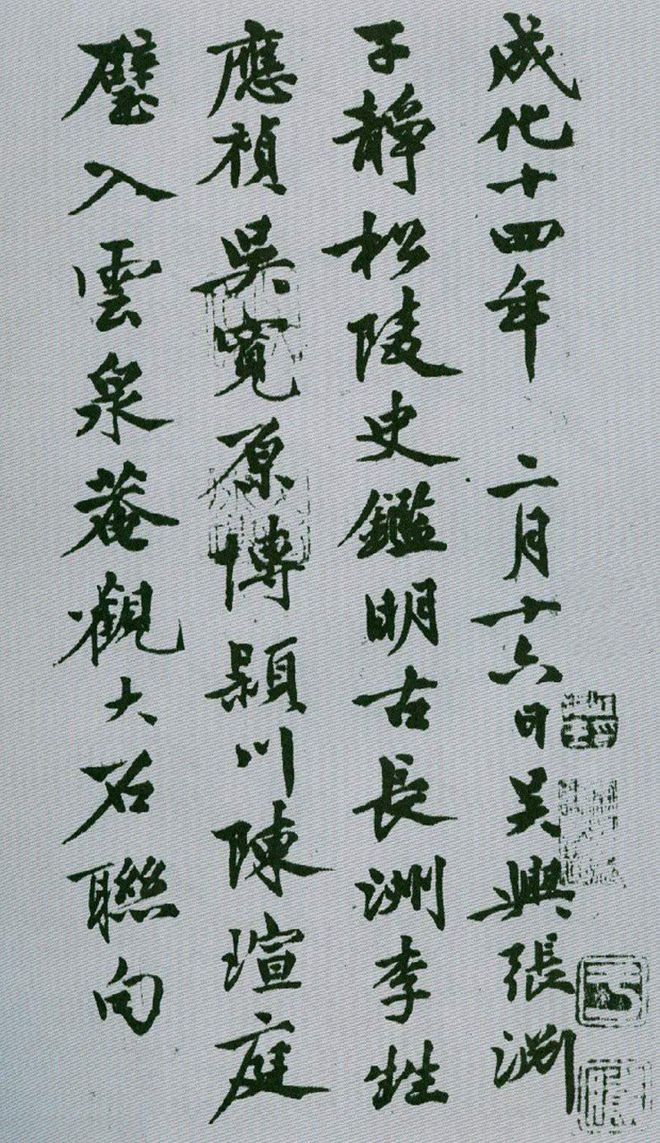 成化十四年 二月十六日吴興張淵
子靜松陵史鑑明古長洲李甡
應禎吳寬原博潁川陳瑄庭
璧入雲泉菴觀大石聯句